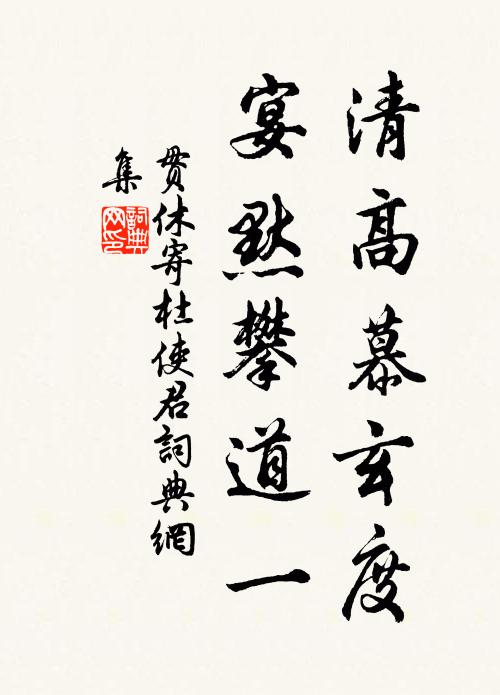 清高慕玄度
宴默攀道一
貫休寄杜使君詞典網
集
詞典
网印